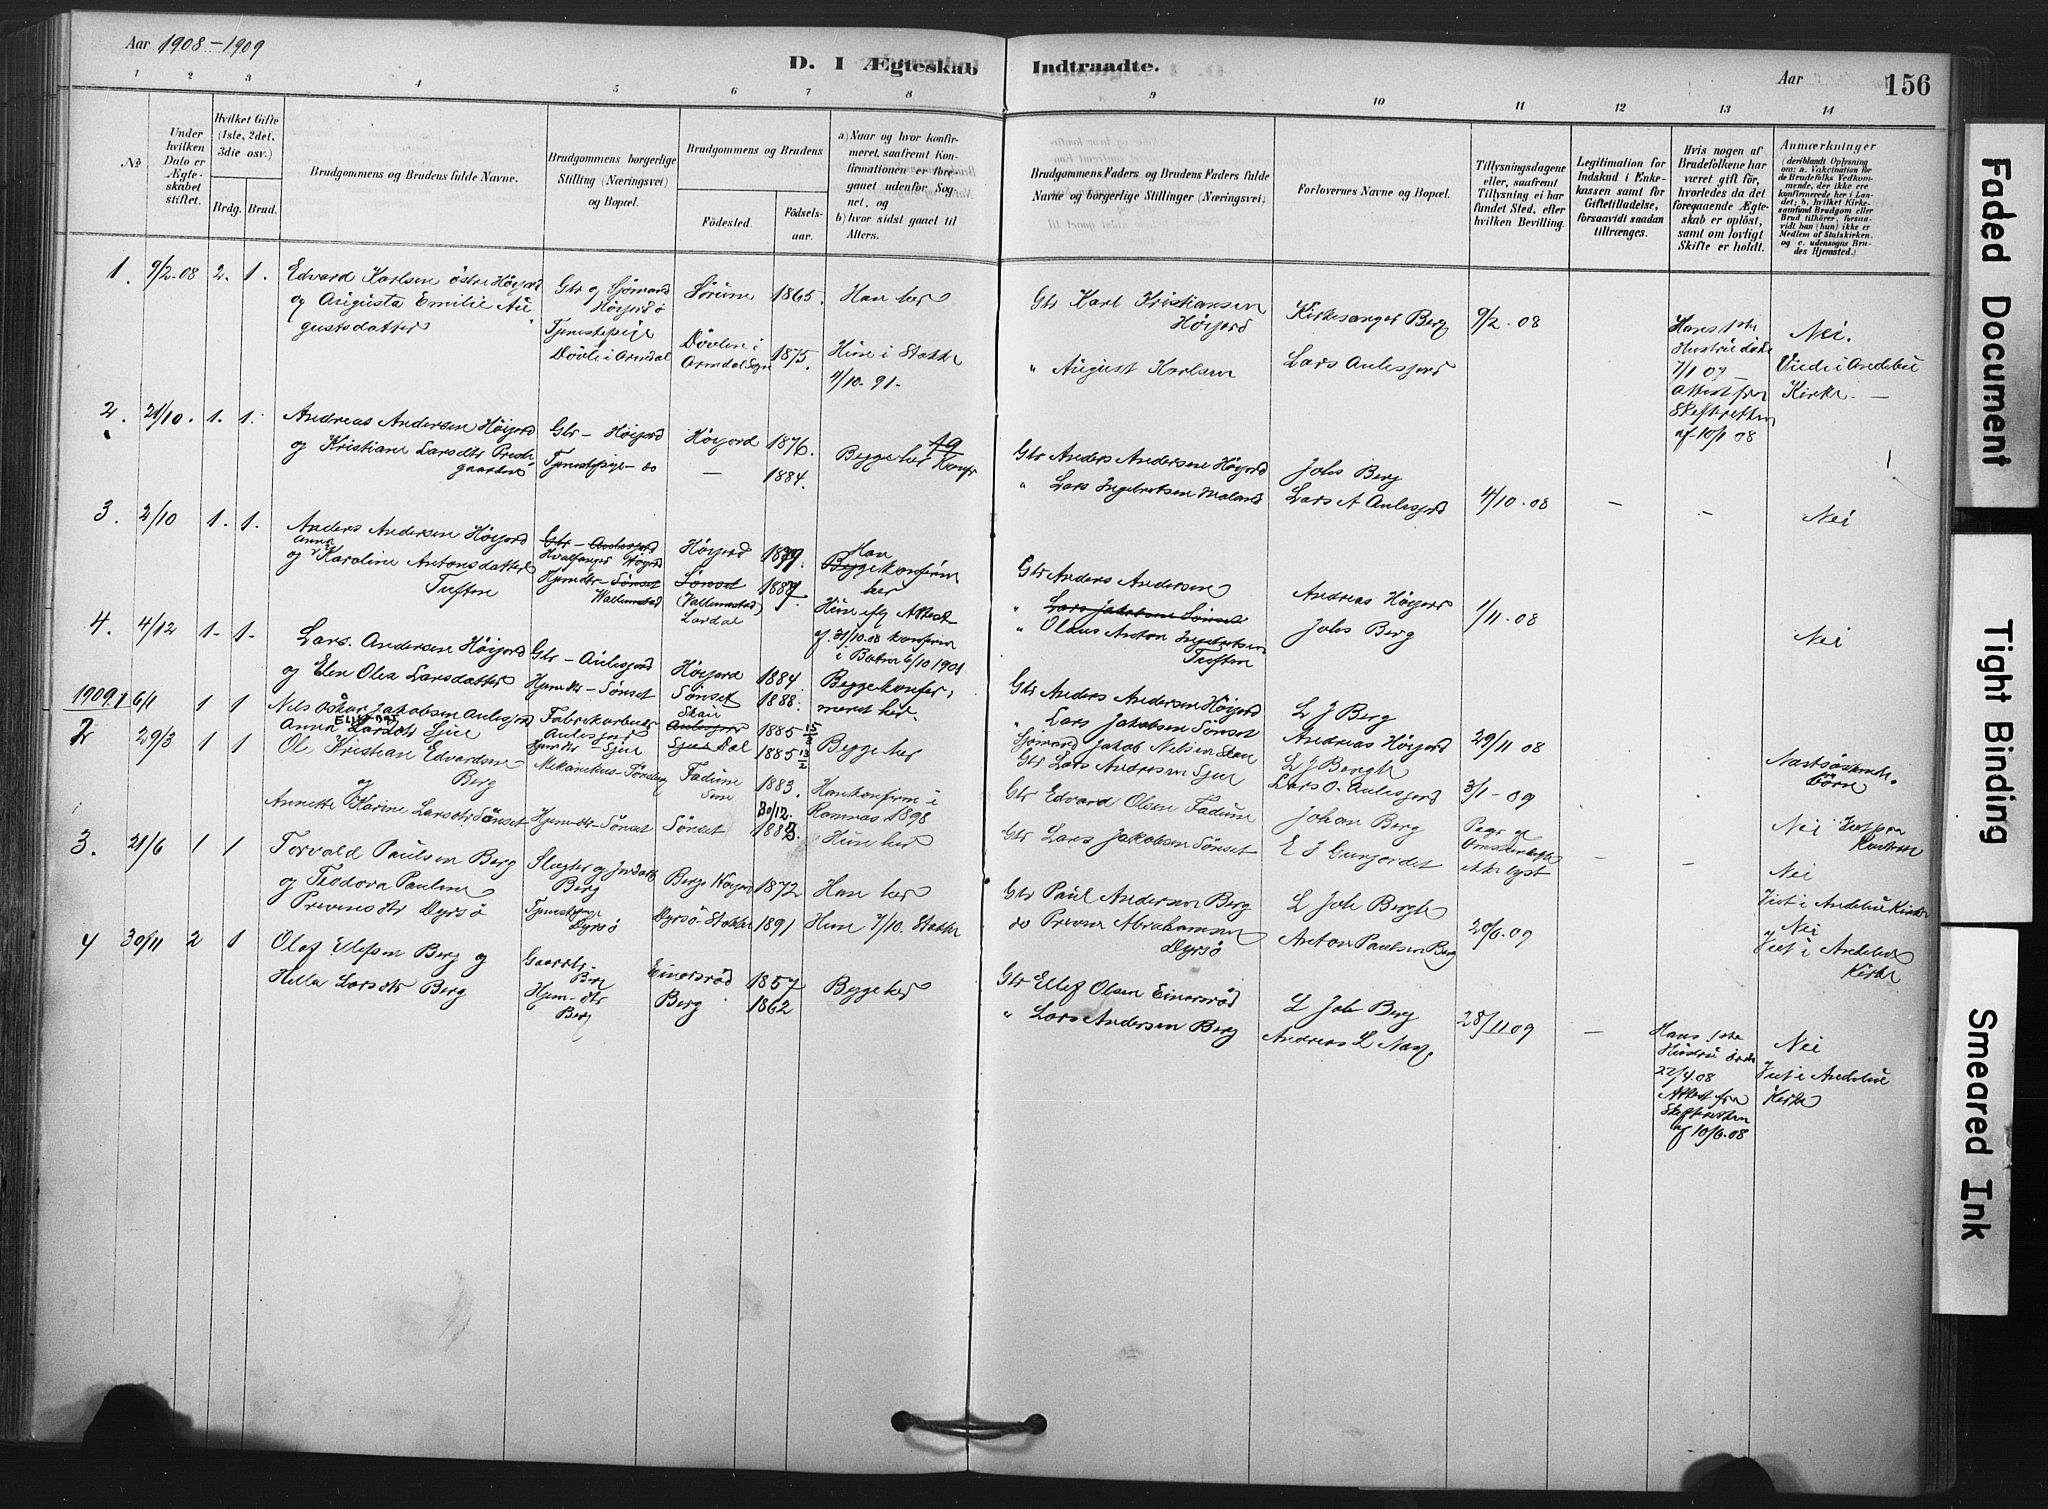 Aar 1908-1909
D. I Ægteskab Indtraadte.
Aar
156
1 2 3 4 5 6 7 8 9 10 11 12 13 14
No
Under hvilken Dato er Ægteskabet stiftet.
Hvilket Gifte (1ste, 2det, 3die osv.)
Brdg. Brud.
Brudgommens og Brudens fulde Navne.
Brudgommens borgerlige Stilling (Næringsvei) og Bopæl.
Brudgommens og Brudens
Fødested. Fødselsaar.
a) Naar og hvor konfirmeret, saafremt Konfirmationen er foregaaet udenfor Sognet, og
b) hvor sidst gaaet til Alters.
Brudgommens Faders og Brudens Faders fulde Navne og borgerlige Stillinger (Næringsvei)
Forlovernes Navne og Bopæl.
Tillysningsdagene eller, saafremt Tillysning ei har fundet Sted, efter hvilken Bevilling.
Legitimation for Indskud i Enkekassen samt for Giftetilladelse, forsaavidt saadan tiltrænges.
Hvis nogen af Brudefolkene har været gift før, hvorledes da det foregaaende Ægteskab er opløst, samt om lovligt Skifte er holdt.
Anmærkninger
(deriblandt Oplysning om: a. Vakcination for de Brudefolks Vedkommende, der ikke ere konfirmerede her i Landet; b. hvilket Kirkesamfund Brudgom eller Brud tilhører, forsaavidt han (hun) ikke er Medlem af Statskirken og c. udensogns Brudes Hjemsted.)
1. 9/2-08 2. 1. Edvard Karlsen østre Høijord
og Augusta Emilie Augustsdatter
Gbr og Sjømand Høijord ø
Tjenestepige Døvle i Arendal
1865. 1875.
Han her
Hun i Stokke 4/10-91-
Gbr Karl Kristiansen Høijord
" August Karlsen
Kirkesanger Berg
Lars Aulesjord
9/2-08
Hans 1ste Hustru døde 7/1 07 - Attest fra Skifteretten af 10/1 08
Nei.
Viede i Andebu Kirke. -
2. 21/10. 1. 1. Andreas Andersen Høijord
og Kristiane Larsdtr Prestegaarden
Gbr - Høijord
Tjenestepige - do
Høijord 1876.
- 1884.
Begge her Konfr
Gbr Anders Andersen Høijord
" Lars Ingebretsen
Johs Berg
Lars A Aulesjord
4/10-08 - - Nei
3. 2/10 1. 1. Anders Andersen Høijord
og Anna Karoline Antonsdatter Tuften
Gbr - Aulesjord
Hvalfanger Høijord
Hjemdtr - Sønset
Wallumstad
Høijord 1879.
Sønset (Vallumstad) Lardal
1887
Han Begge konfirm her
Hun eflg Attest af 31/10-08 konfirm i Botne 6/10 1901
Gbr Anders Andersen
" Lars Jakobsen Sønset
" Olaus Anton Ingebretsen Tuften
Andreas Høijord
Johs Berg
1/11-08
Nei
4. 4/12 1- 1- Lars Andersen Høijord
og Elen Olea Larsdatter
Gbr - Aulesjord
Hjemdtr - Sønset
Høijord 1884
Sønset 1888.
Begge konfirmeret her.
Gbr Anders Andersen Høijord
" Lars Jakobsen Sønset
L J Berg
Andreas Høijord
29/11 08
1909. 1 6/1 1 1 Nils Oskar Jakobsen Aulesjord
Anna Elisabet Larsdtr Sjue
Fabrikarbeider Aulesjord
Hjemdtr - Sjue
Skau Aulesjord 1885 15/3
Sjue Dal 1885 13/2
Begge her
Sjømand Jakob Nilsen Skau
Gbr Lars Andresen Sjue
L J Bergh
Lars O. Aulesjord
3/1-09
Næstsøskendebørn
2 29/3 1 1 Ole Kristian Edvardsen Berg
og
Annette Karine Larsdtr Sønset
Mekanikus - Tønsberg
Hjemdtr - Sønset
Fadum Sem 1883.
Sønset 30/12. 1885.
Han konfirm i Ramnæs 1898
Hun her
Gbr Edvard Olsen Fadum
Gbr Lars Jakobsen Sønset
Johan Berg
E J Gunjordet
ikke lyst
- -
Nei
3. 21/6 1 1 Torvald Paulsen Berg
og Teodora Pauline Prevensdtr Dyrsø
Slagter Berg
Tjenestepige Dyrsø
Berg Høijord 1872
Dyrsø - Stokke 1891
Han her
Hun 7/10. Stokke
Gbr Paul Andersen Berg
do Preven Abrahamsen Dyrsø
L Joh Bergh
Anton Paulsen Berg
20/6.09
Nei
Viet i Andebu Kirke
4 30/11 2 1 Olaf Ellefsen Berg og
Hella Larsdtr Berg
Gaardbr. Berg
Hjem-dtr Berg
Einarsrød 1857
Berg 1862
Begge her
Gbr Ellef Olsen Einarsrød
" Lars Andersen Berg
L Joh Berg
Andreas L Næs
28/11 09
-
Hans 1ste Hustru døde 22/4.08
Attest fra Skifteretten af 10/6-08
Nei
Viet i Andebu Kirke
Faded Document
Tight Binding
Smeared Ink